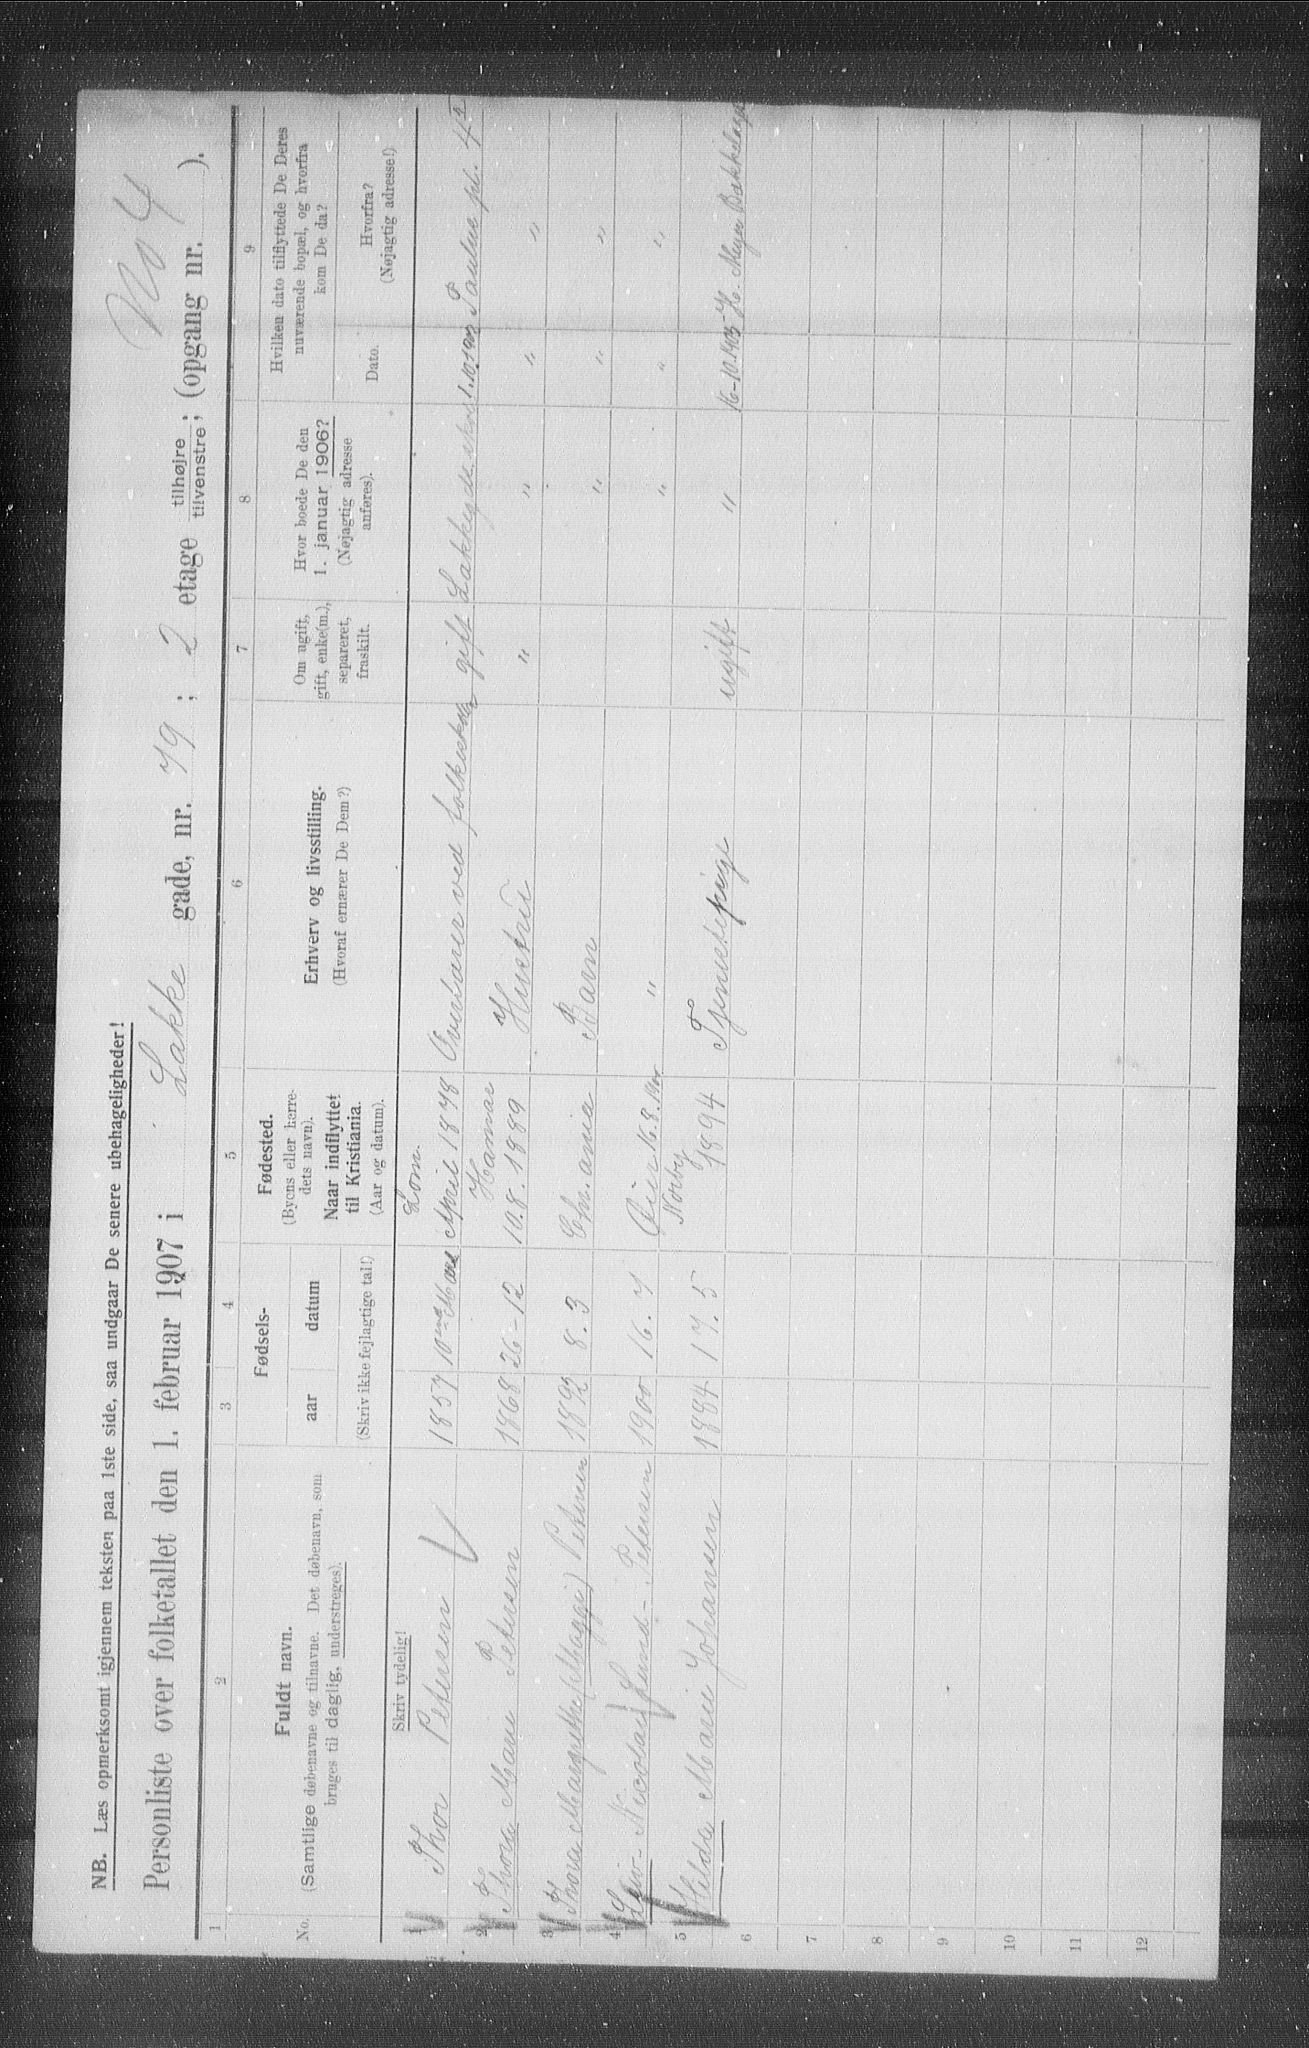 NB. Læs opmerksomt igjennem teksten paa 1ste side, saa undgaar De senere ubehageligheder!
No 4
Personliste over folketallet den 1. februar 1907 i Lakke gade, nr. 79; 2 etage tilhøjre tilvenstre; (opgang nr. ).
1 2 3 4 5 6 7 8 9
No.
Fuldt navn.
(Samtlige døbenavne og tilnavne. Det døbenavn, som
bruges til daglig, understreges).
Skriv tydelig!
Fødsels-
aar datum
(Skriv ikke fejlagtige tal!)
Fødested.
(Byens eller herre-
dets navn).
Naar indflyttet
til Kristiania.
(Aar og datum).
Erhverv og livsstilling.
(Hvoraf ernærer De Dem?)
Om ugift,
gift, enke(m.),
separeret,
fraskilt.
Hvor boede De den
1. januar 1906?
(Nøjagtig adresse
anføres).
Hvilken dato tilflyttede De Deres
nuværende bopæl, og hvorfra
kom De da?
Dato.
Hvorfra?
(Nøjagtig adresse!)
1 Thor Petersen 1857 10 Mars Lom April 1878 Overlærer ved folkeskolen gift Lakkegd. skole 1.10.1903 Paulus pl. 4
2 Thora Marie Petersen 1868 26-12 Hamar 10.8.1889 Hustru " " " "
3 Thora Margrethe (Maggi) Petersen 1892 8.3 Chr.ania Barn " " "
4 Leiv-Nicolai Lund-Petersen 1900 16.7 Øier 16.8.1900 " " " "
5 Hilda Marie Johansen 1884 17.5 Norby 1894 Tjenestepige ugift " 16-10.1903 H. Meyer Bakkelaget
6
7
8
9
10
11
12